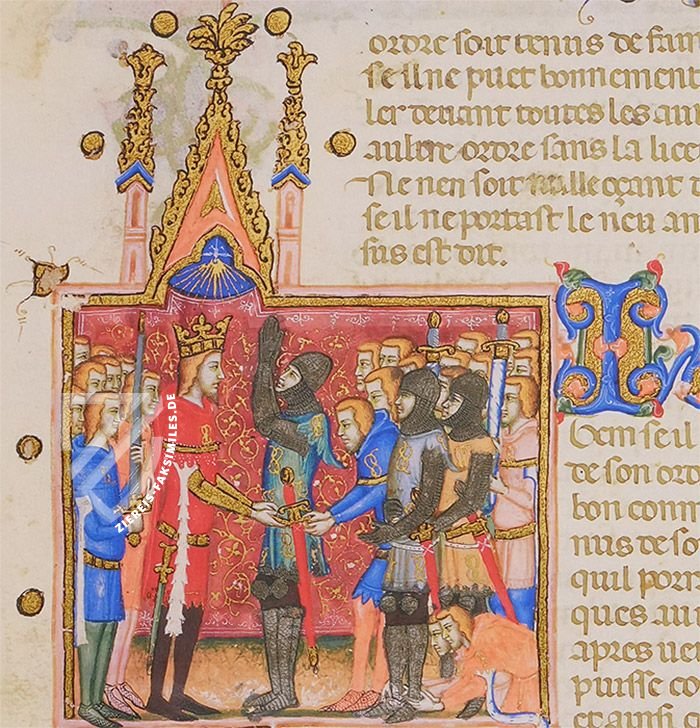 ordre soit tenus de
se il ne puet bonnement
ler deuant toutes les au
aultre ordre sans la lice
Ne nen soit nulle
se il ne portast le neu au
sus est dit.
I
tem se il
de son ord
bon com
nus de so
quil port
ques au
apres uen
puisse
ZIEREIS-FAKSIMILES.DE